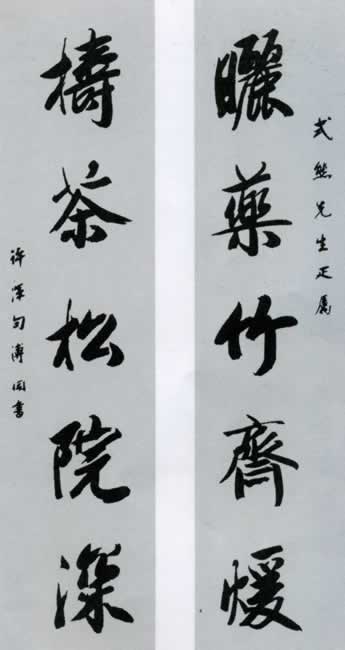 式熊先生正屬
曬藥竹齋煖
擣茶松院深
許渾句溥侗書